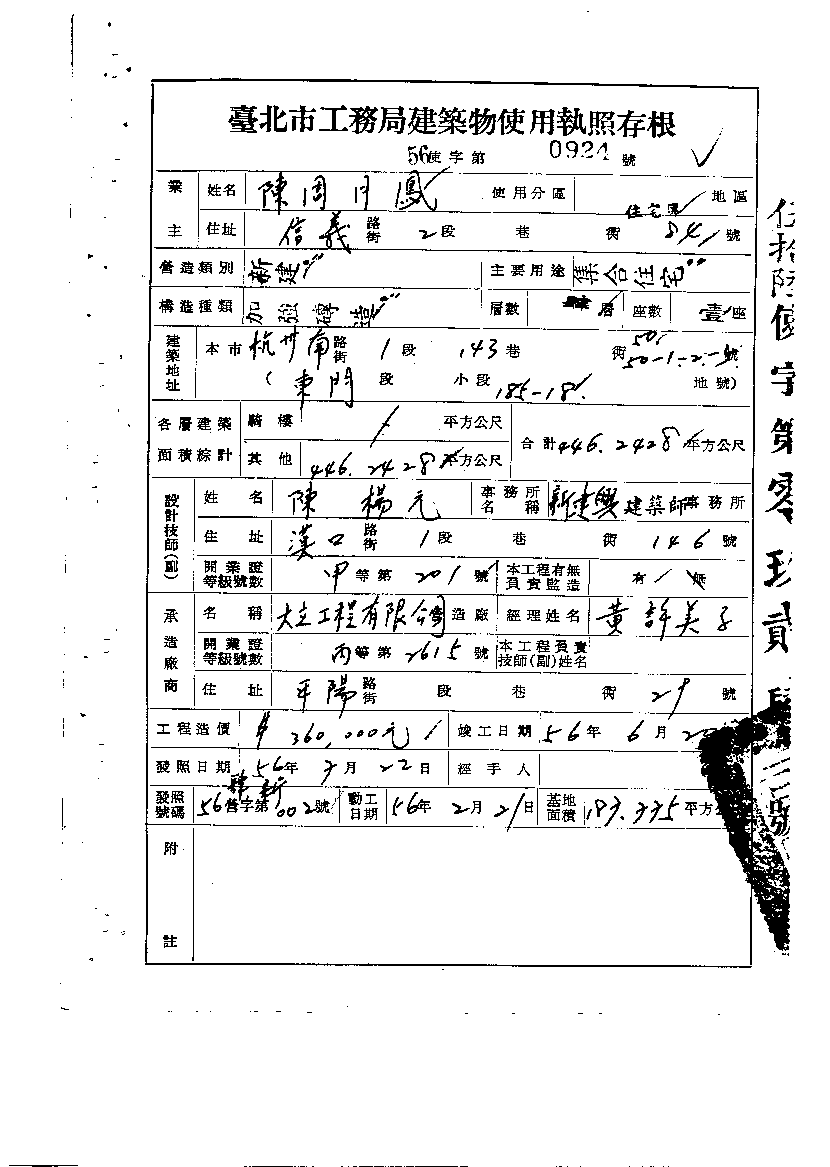 臺北市工務局建築物使用執照存根
56使字第 0924 號
業主 姓名 陳周月鳳 使用分區 住宅區 地區
住址 信義路街 2段 巷 街 84 號
營造類別 新建 主要用途 集合住宅
構造種類 加強磚造 層數 層 座數 壹座
建築地址 本市 杭州南路街 1段 143巷 街 50-1-2- 號
(東門 段 小段 185-18 地號)
各層建築面積綜計 騎樓 平方公尺 合計 446.2428 平方公尺
其他 446.2428 平方公尺
設計技師(副) 姓名 陳楊元 事務所名稱 新建興建築師事務所
住址 漢口路街 1段 巷 街 146 號
開業證等級號數 甲等第 201 號 本工程有無負責監造 有 無
承造廠商 名稱 大立工程有限公司造廠 經理姓名 黃許美子
開業證等級號數 丙等第 2615 號 本工程負責技師(副)姓名
住址 平陽路街 段 巷 街 29 號
工程造價 $ 360,000元 竣工日期 56年 6月 20
發照日期 56年 7月 22日 經手人
發照號碼 56營字第 002號 動工日期 56年 2月 21日 基地面積 187.775 平方公
附註
伍拾陸使字第零玖貳肆號